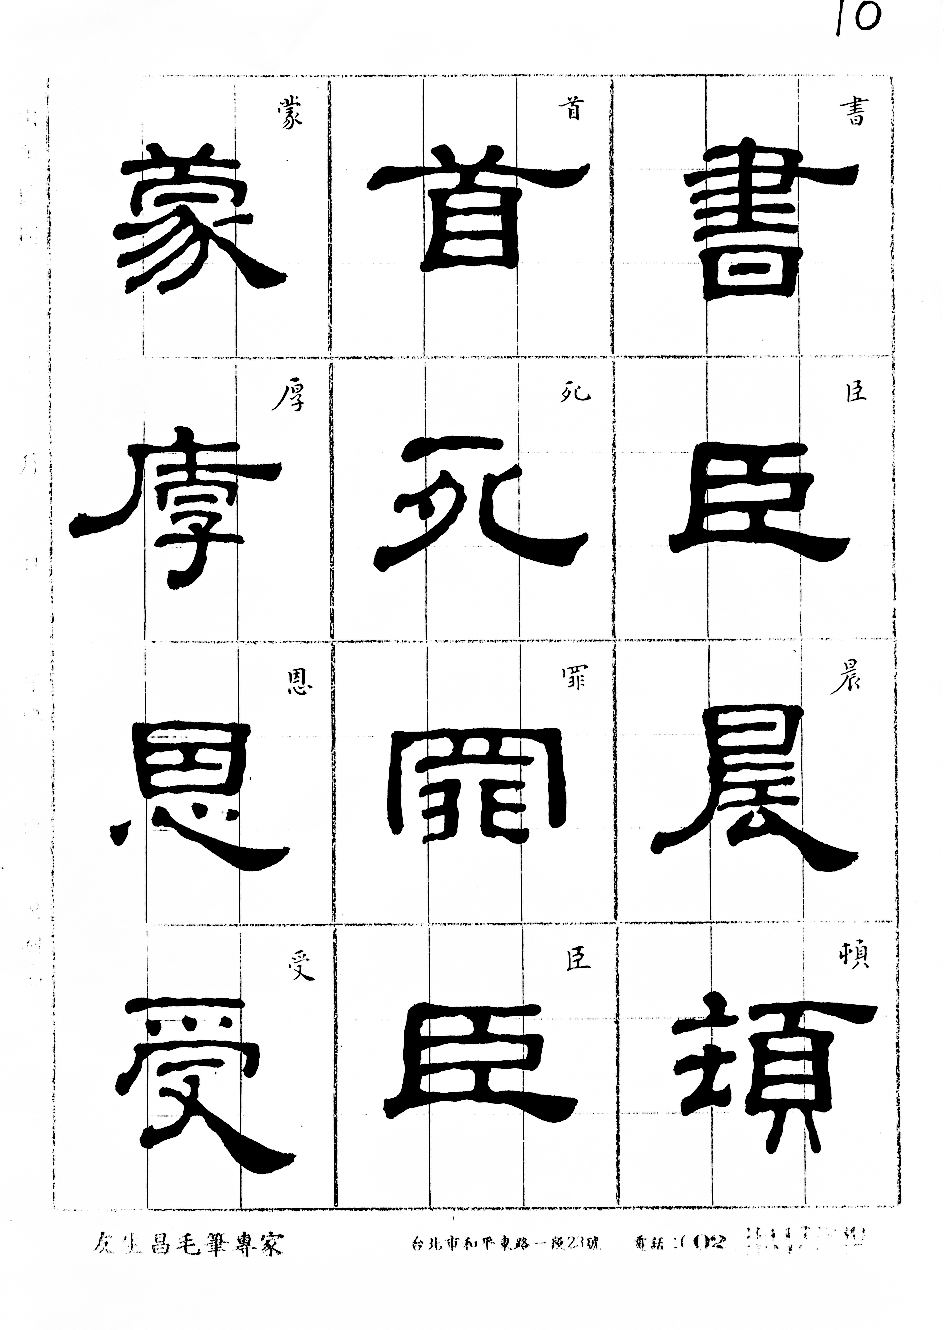 10
書臣晨頓
書臣晨頓
首死罪臣
首死罪臣
蒙厚恩受
蒙厚恩受
友生昌毛筆專家 台北市和平東路一段23號 電話:(02